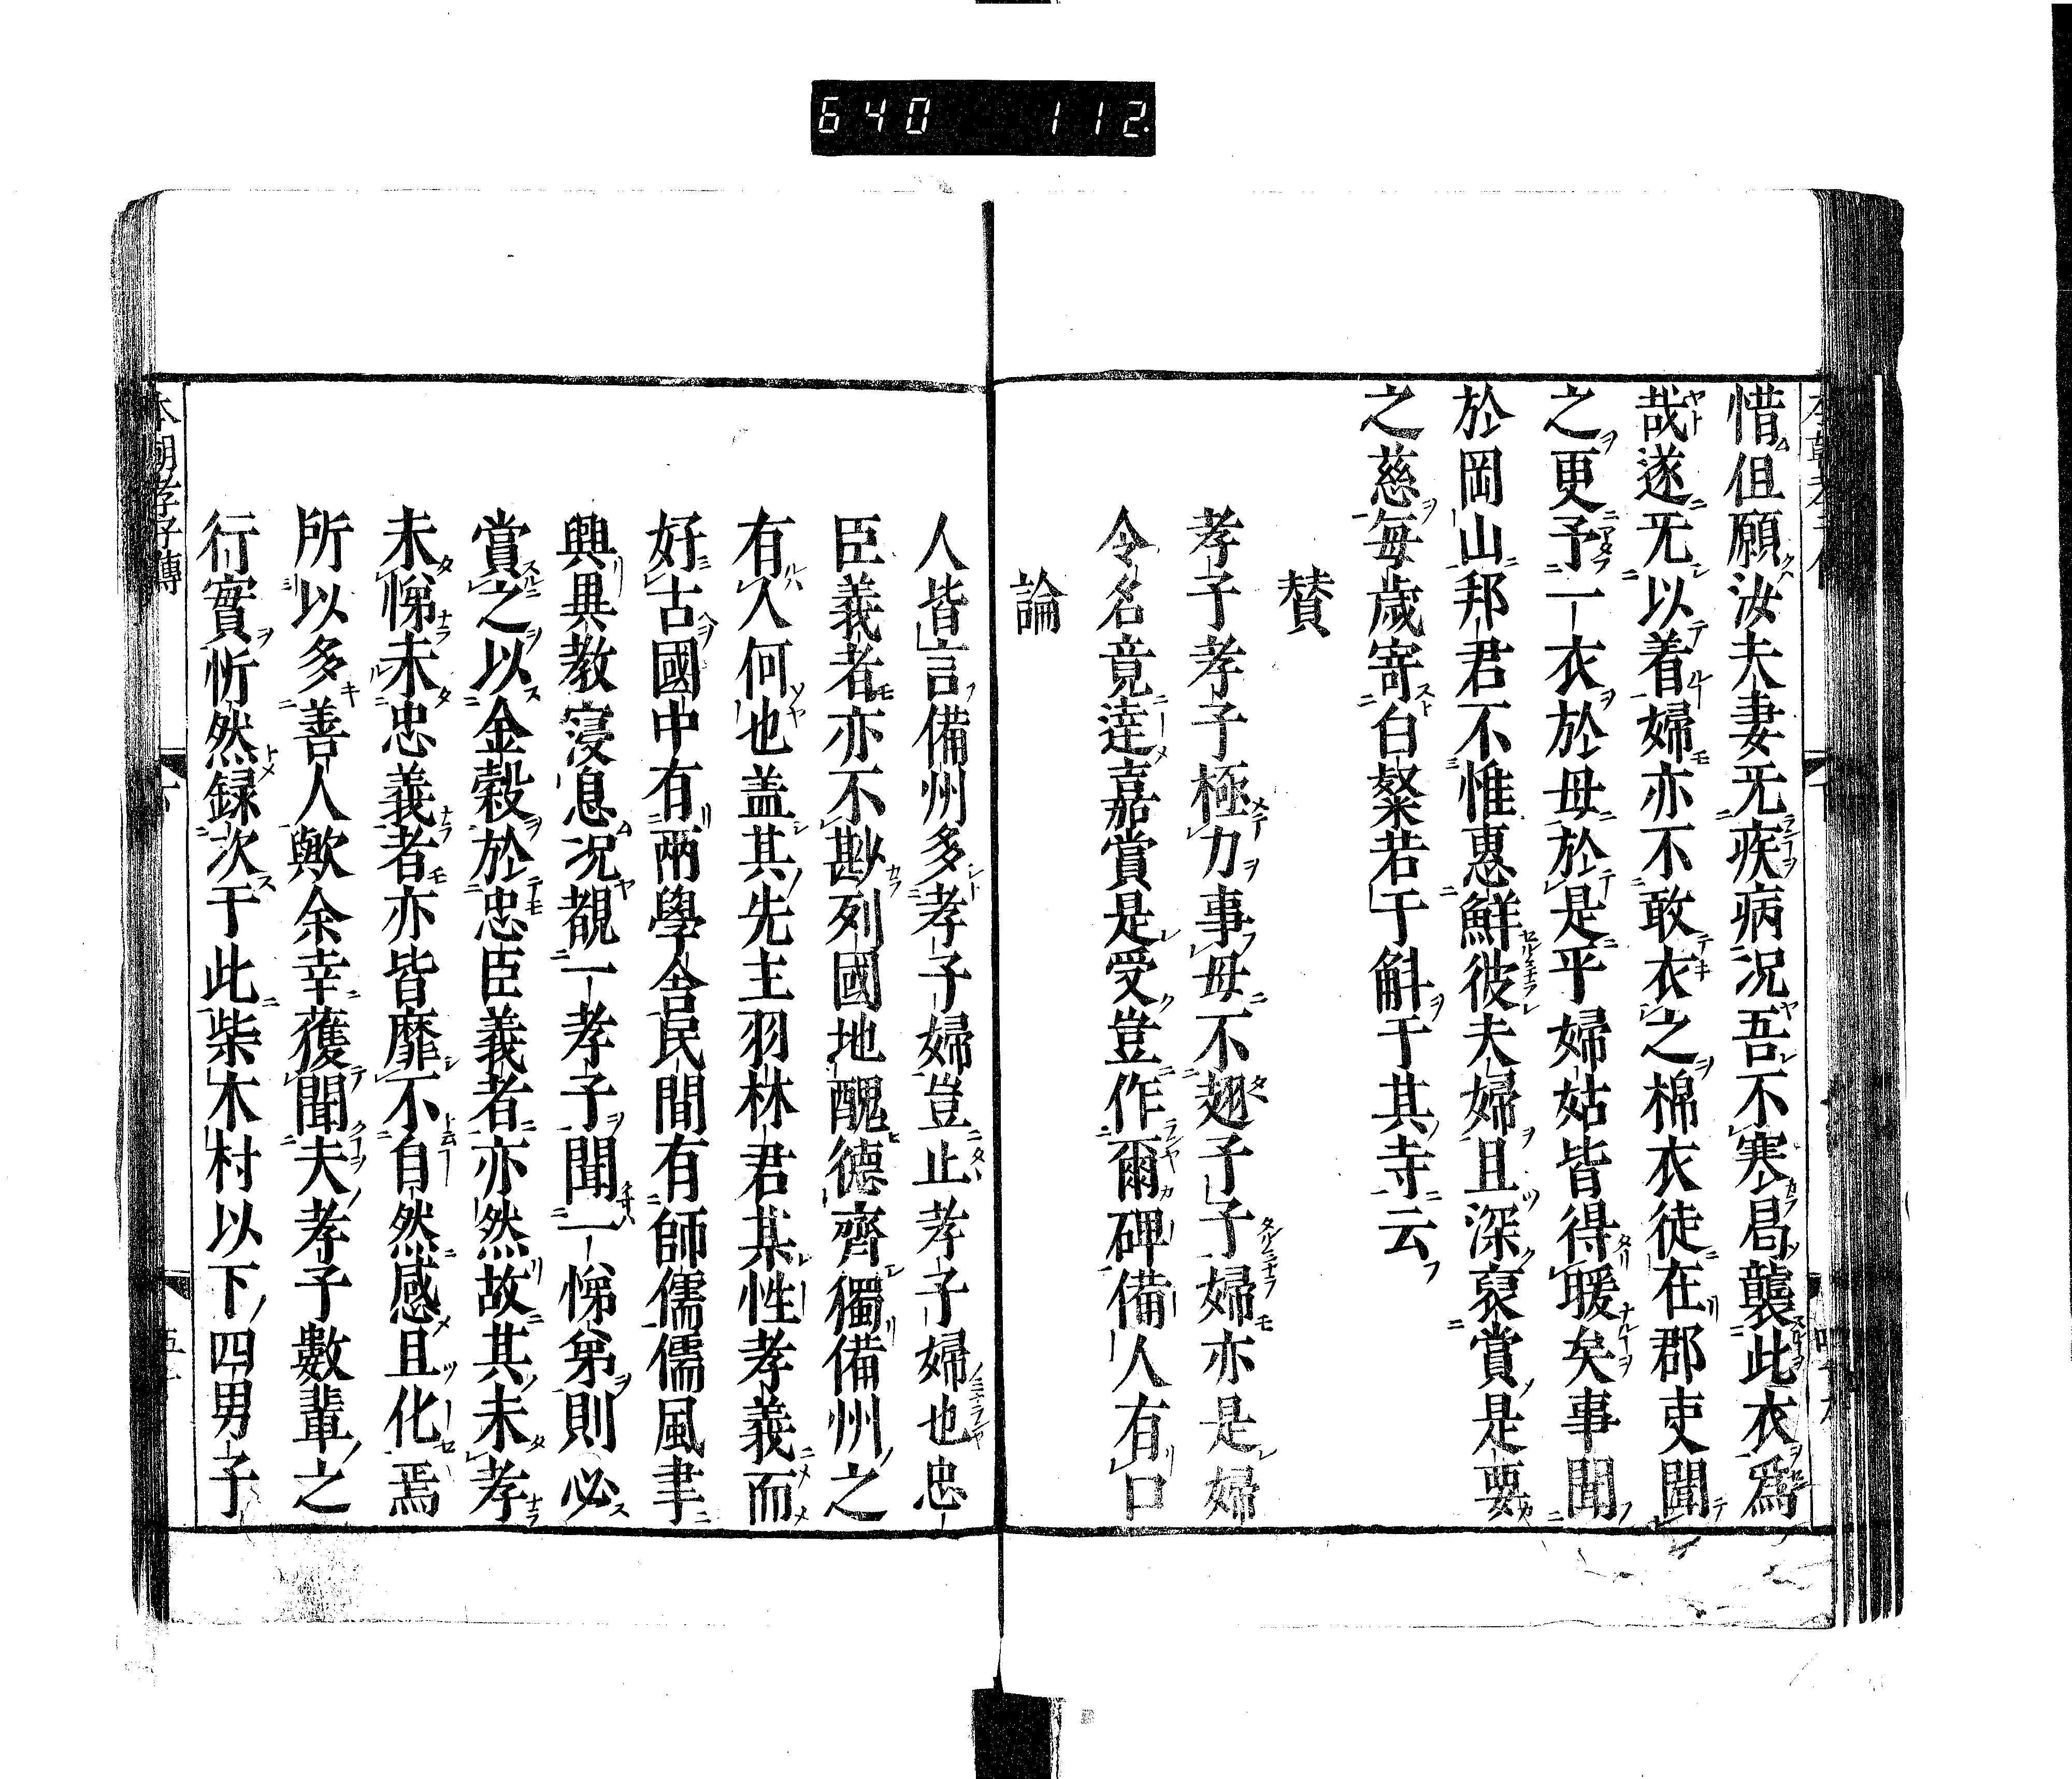 640 112.
惜但願汝夫妻无疾病况吾不寒曷襲此衣爲
哉遂无以着婦亦不敢衣之棉衣徒在郡吏聞
之更予一衣於母於是乎婦姑皆得暖矣事聞
於岡山邦君不惟惠鮮彼夫婦且深裒賞是要
之慈每歲寄白粲若干斛于其寺云
賛
孝子孝子極力事母不趐子子婦亦是婦
令名竟達嘉賞是受豈作爾碑備人有口
論
人皆言備州多孝子婦豈止孝子婦也忠
臣義者亦不尠列國地醜德齊獨備州之
有人何也盖其先主羽林君某性孝義而
好古國中有兩學舍民間有師儒儒風聿
興異教寖息况覩一孝子聞一悌弟則必
賞之以金穀於忠臣義者亦然故其未孝
未悌未忠義者亦皆靡不自然感且化焉
所以多善人歟余幸獲聞夫孝子數輩之
行實忻然録次于此柴木村以下四男子
本朝孝子傳 下